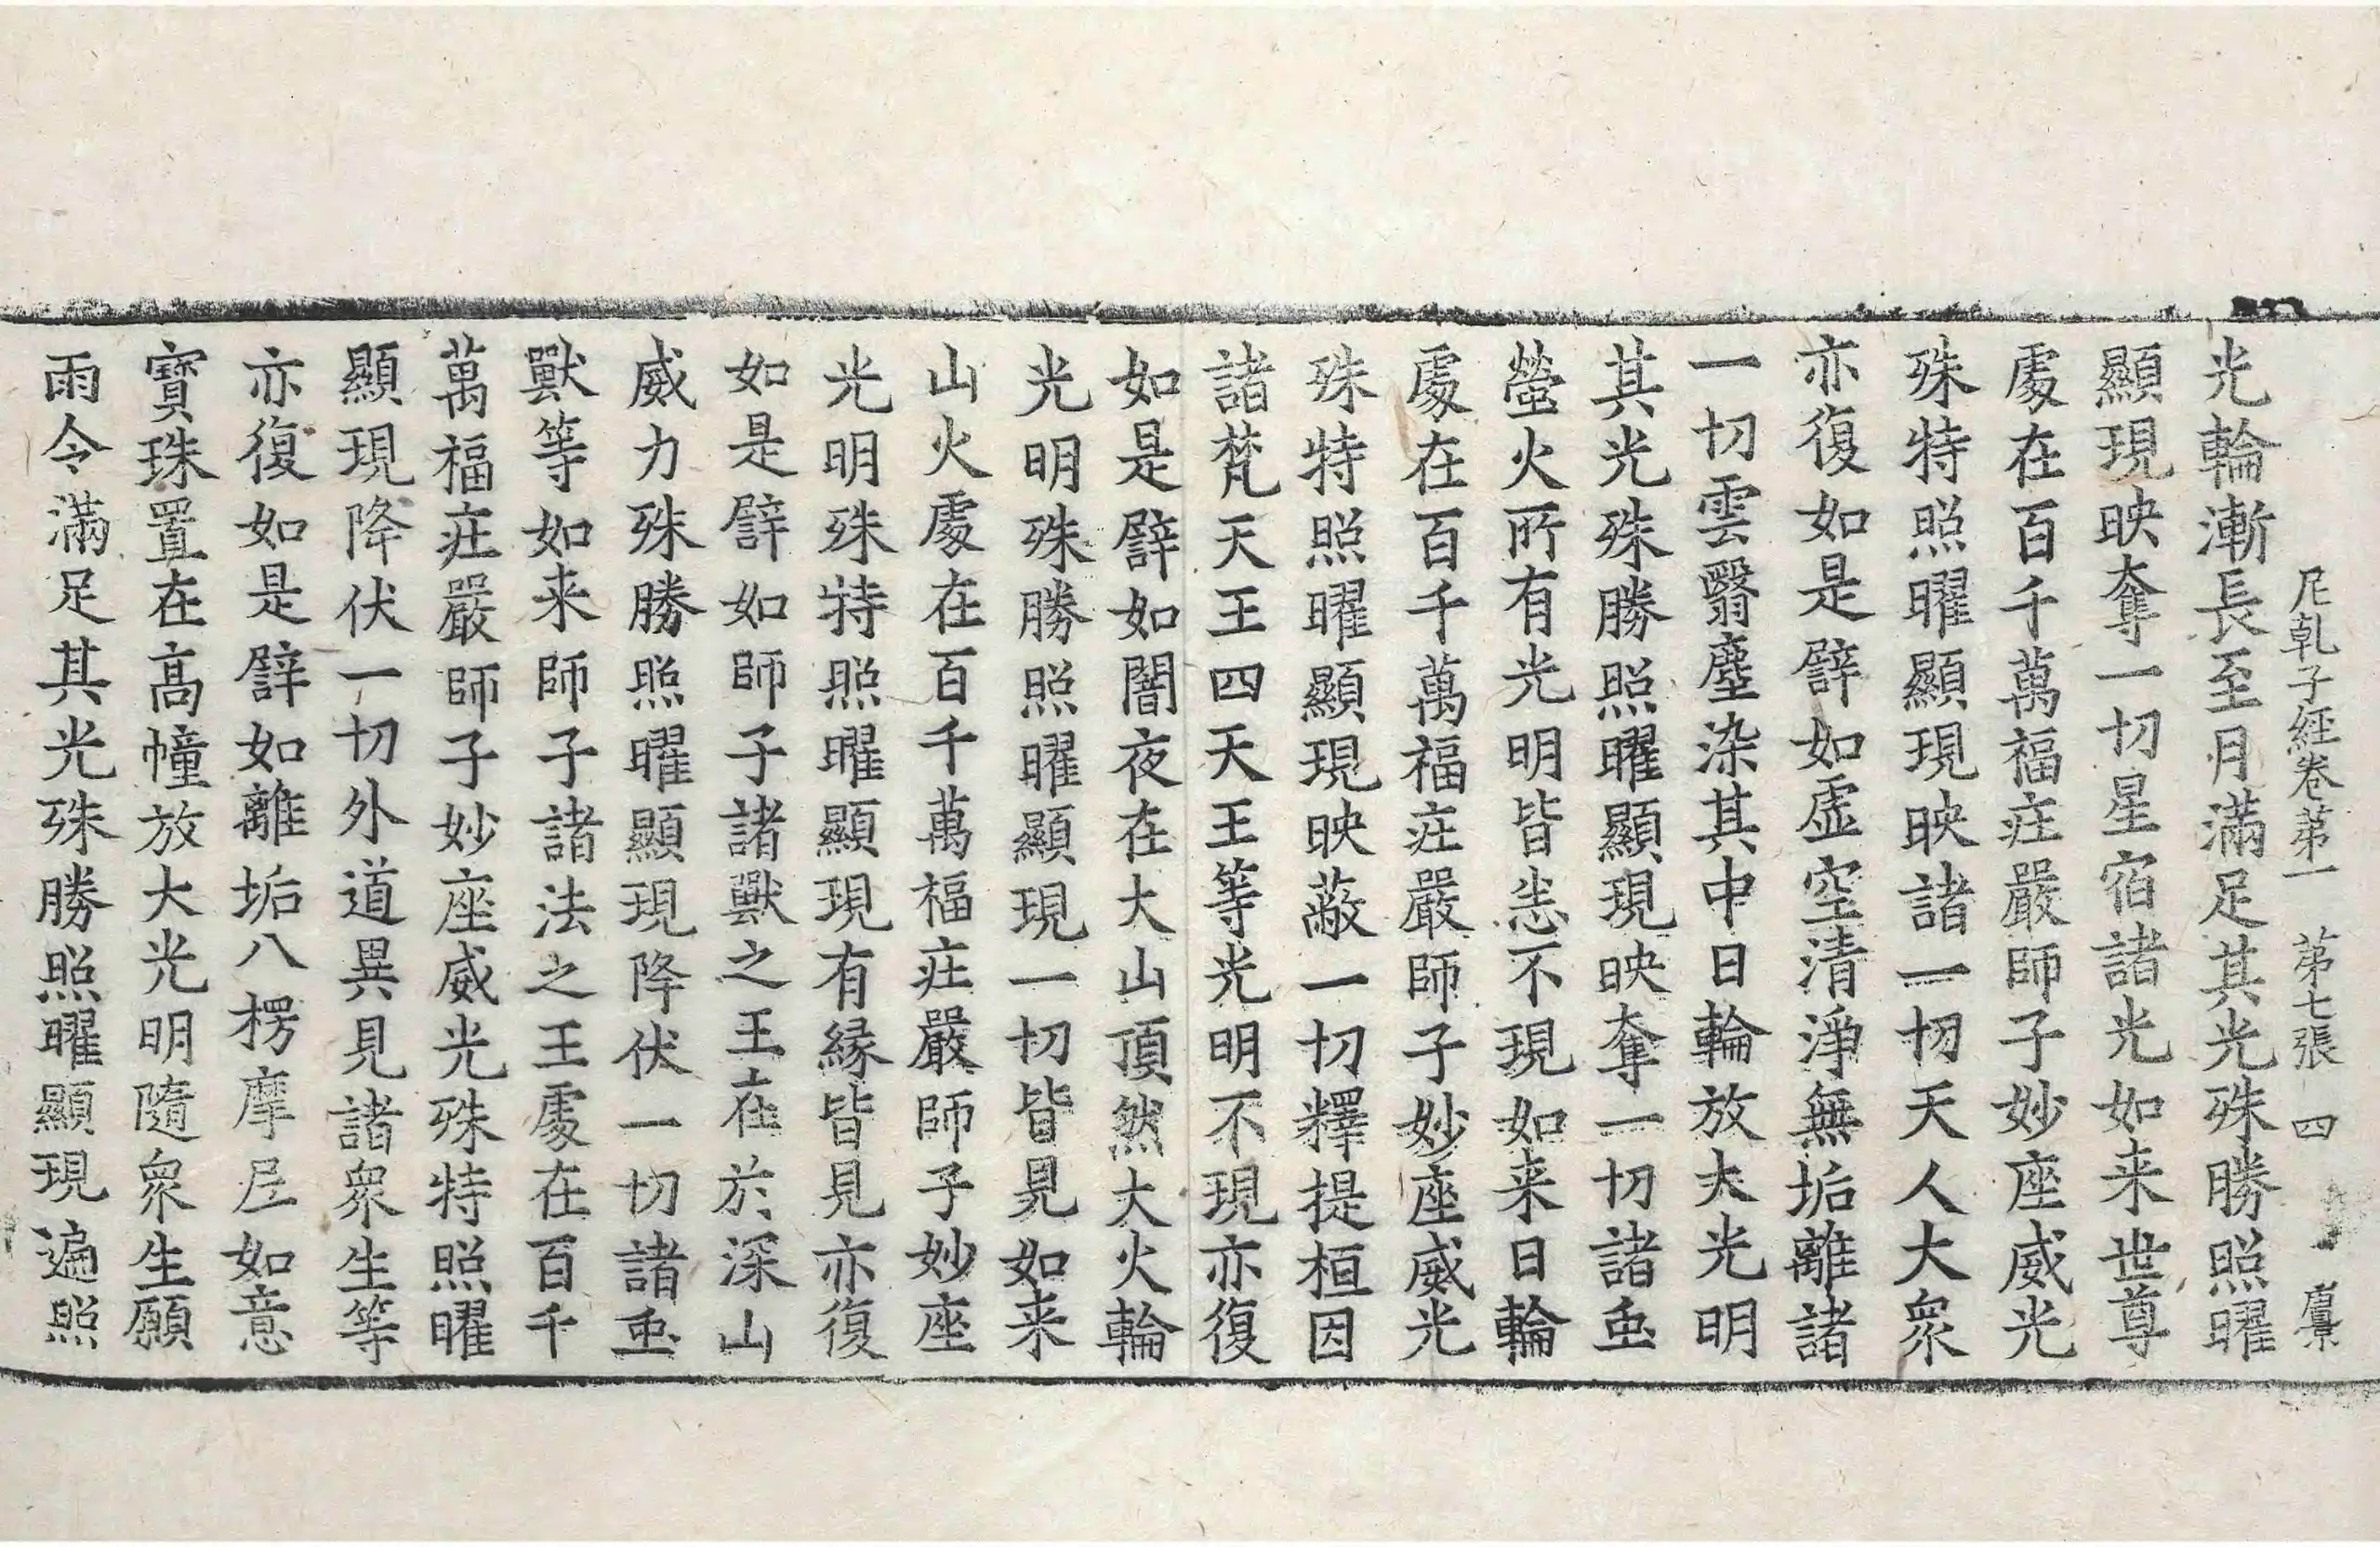 尼乹子經卷苐一　苐七張　四
光輪漸長至月滿足其光殊勝照曜
顯現映奪一切星宿諸光如来世尊
處在百千萬福莊嚴師子妙座威光
殊特照曜顯現映諸一切天人大衆
亦復如是譬如虛空清淨無垢離諸
一切雲翳塵染其中日輪放大光明
其光殊勝照曜顯現映奪一切諸䖝
螢火所有光明皆悉不現如来日輪
處在百千萬福莊嚴師子妙座威光
殊特照曜顯現映蔽一切釋提桓因
諸梵天王四天王等光明不現亦復
如是譬如闇夜在大山頂然大火輪
光明殊勝照曜顯現一切皆見如来
山火處在百千萬福莊嚴師子妙座
光明殊特照曜顯現有縁皆見亦復
如是譬如師子諸獸之王在於深山
威力殊勝照曜顯現降伏一切諸䖝
獸等如来師子諸法之王處在百千
萬福莊嚴師子妙座威光殊特照曜
顯現降伏一切外道異見諸衆生等
亦復如是譬如離垢八楞摩尼如意
寶珠置在高幢放大光明隨衆生願
雨令滿足其光殊勝照曜顯現遍照